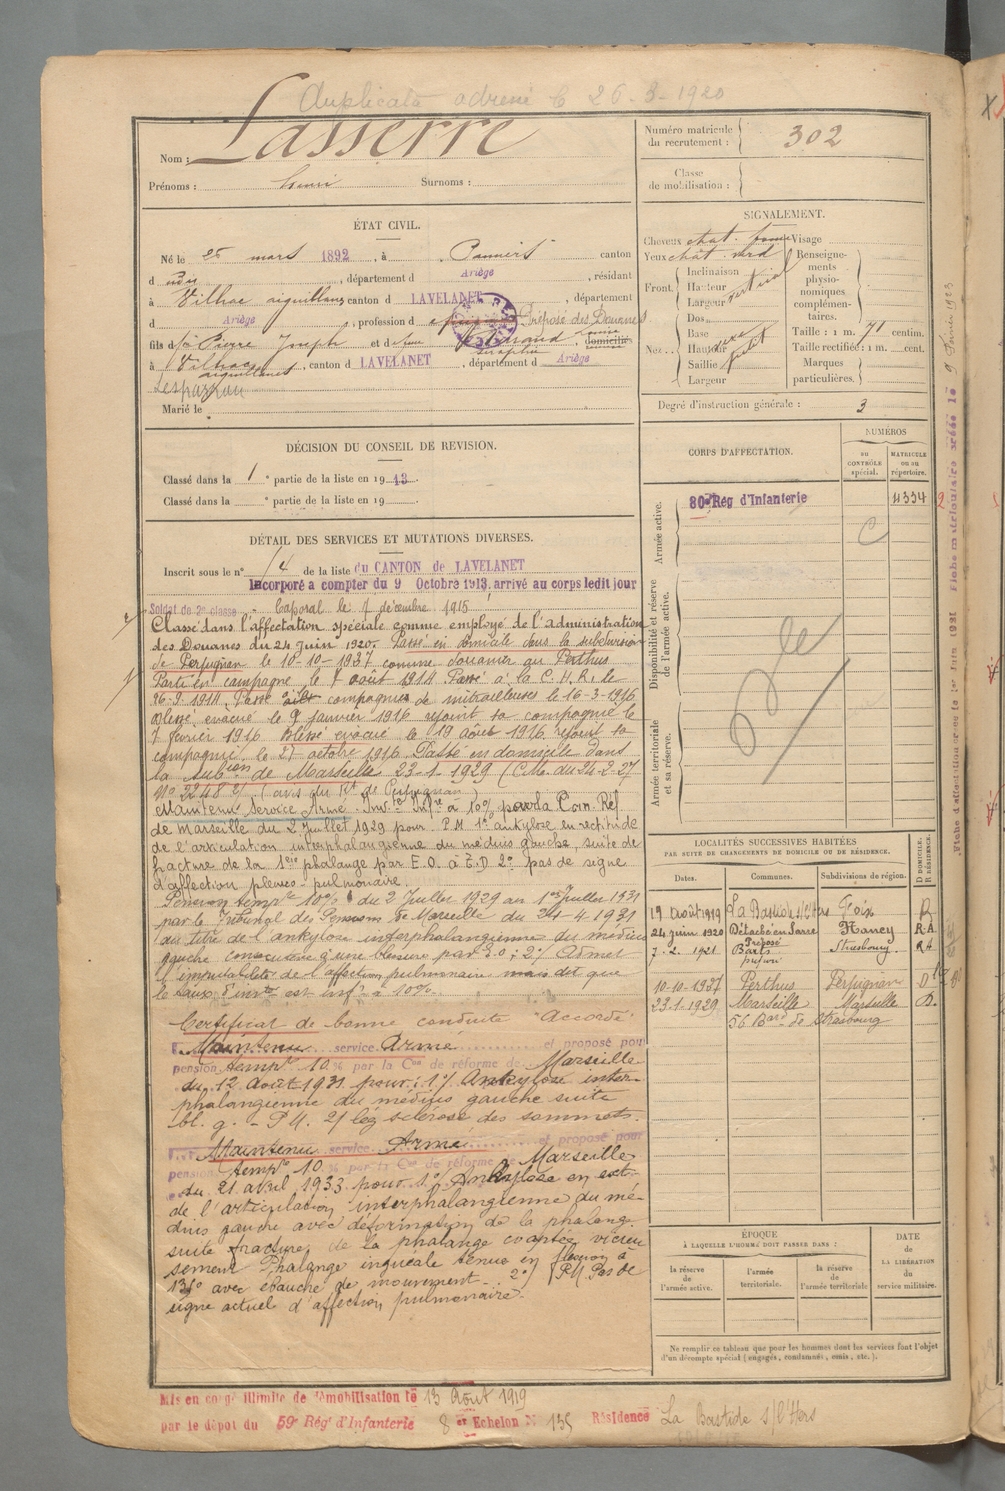 Duplicata adressé le 26-8-1920
Nom : Lasserre
Prénoms : Henri Surnoms :
ÉTAT CIVIL.
Né le 25 mars 1892, à Pamiers canton
d dudit, département d Ariège, résidant
à Vilhac aiguillanes canton de LAVELANET, département
d Ariège, profession d Préposé des Douanes
fils de Pierre Joseph et de feue Séraphie domiciliés
à Vilhac aiguillanes, canton d LAVELANET, département d Ariège
Marié le
DÉCISION DU CONSEIL DE REVISION.
Classé dans la 1e partie de la liste en 1913.
Classé dans la e partie de la liste en 19
DÉTAIL DES SERVICES ET MUTATIONS DIVERSES.
Inscrit sous le n° 14 de la liste du CANTON de LAVELANET
Incorporé a compter du 9 Octobre 1913, arrivé au corps ledit jour
Soldat de 2e classe Caporal le 7 décembre 1915
Classé dans l'affectation spéciale comme employé de l'administration
des Douanes du 24 Juin 1920. Passé en domicile dans la subdivision
de Perpignan le 10-10-1927 comme douanier au Perthus
Parti en campagne le 7 août 1914 Passé à la C.H.R. le
26-9-1914. Passé compagnie de mitrailleuses le 16-3-1916
Blessé évacué le 9 janvier 1916 rejoint sa compagnie le
7 février 1916 Blessé évacué le 19 août 1916 rejoint sa
compagnie le 27 octobre 1916 Passé en domicile dans
la subion de Marseille 23-1-1929 (C.M. du 24-2-27
N° 2248 (avis du Rt de Perpignan)
Maintenu Service Armé. Invté infre à 10% par la Com. Réf.
de Marseille du 2 Juillet 1929 pour P.M 1° ankylose en rectitude
de l'articulation intraphalangienne du médius gauche, suite de
fracture de la 1ère phalange par E.O. à E.D 2° pas de signe
d'affection pleuro-pulmonaire.
Pension tempre 10% du 2 Juillet 1929 au 1er Juillet 1931
par le Tribunal des Pensions de Marseille du 24-4-1931
au titre de l'ankylose interphalangienne du médius
gauche consécutive d'une blessure par E.O; 2°/ Admet
l'imputabilité de l'affection pulmonaire mais dit que
le taux d'invté est infr à 10%.
Certificat de bonne conduite "Accordé"
Maintenu service Armé et proposé pour
pension tempre 10 % par la Con de réforme de Marseille
du 12 Août 1931 pour : 1°/ Ankylose inter-
phalangienne du médius gauche suite
bl. g. - P.M. 2/ lég sclérose des sommets.
Maintenu service Armé et proposé pour
pension tempre 10 % par la Con de réforme de Marseille
du 21 avril 1933 pour : 1° Ankylose en ext.
de l'articulation interphalangienne du mé-
dius gauche avec déformation de la phalang.
suite fracture de la phalange cooptée vicieu
sement Phalange inguéale tenue en flexion à
135° avec ébauche de mouvement. 2°/ P.M Pas de
signe actuel d'affection pulmonaire.
Mis en congé illimité de démobilisation le 13 Août 1919
par le dépôt du 59e Rég d'Infanterie 8 er Echelon N° 135 Résidence La Bastide s/l'Hers
Numéro matricule du recrutement : 302
Classe de mobilisation :
SIGNALEMENT.
Cheveux chat. foncé Visage
Yeux chât. verd
Front. Inclinaison
Hauteur
Largeur
Nez. Dos
Base
Hauteur
Saillie petit
Largeur
Renseignements physionomiques complémentaires.
Taille : 1 m. 71 centim.
Taille rectifiée : 1 m. cent.
Marques particulières.
Degré d'instruction générale : 3
CORPS D'AFFECTATION.
NUMÉROS
au CONTRÔLE spécial.
MATRICULE ou au répertoire.
Armée active.
80e Rég d'Infanterie 4334
C
Disponibilité et réserve de l'armée active.
Armée territoriale et sa réserve.
LOCALITÉS SUCCESSIVES HABITÉES
PAR SUITE DE CHANGEMENTS DE DOMICILE OU DE RÉSIDENCE.
Dates. Communes. Subdivisions de région. D DOMICILE. R RÉSIDENCE.
19 Août 1919 La Bastide s/l'Hers Foix R
24 Juin 1920 Détaché en Sarre Nancy R.A.
7.2.1921 Préposé Strasbourg R.A
10-10-1927 Perthus Perpignan D
23.1.1929 Marseille Marseille D.
56 Bard de Strasbourg
ÉPOQUE
À LAQUELLE L'HOMME DOIT PASSER DANS :
la réserve de l'armée active.
l'armée territoriale.
la réserve de l'armée territoriale
DATE de LA LIBÉRATION du service militaire.
Ne remplir ce tableau que pour les hommes dont les services font l'objet
d'un décompte spécial (engagés, condamnés, omis, etc.).